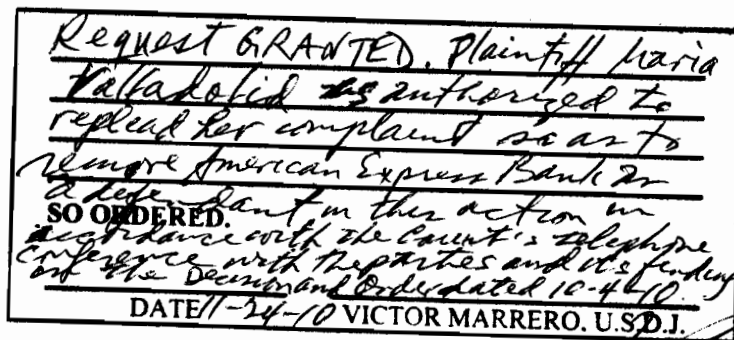 Request GRANTED. Plaintiff Maria
Valladolid is authorized to
replead her complaint so as to
remove American Express Bank as
a defendant in this action in
SO ORDERED.
accordance with the Court's telephone
conference with the parties and its finding
the Decision and Order dated 10-4-10.
DATE 11-24-10 VICTOR MARRERO. U.S.D.J.